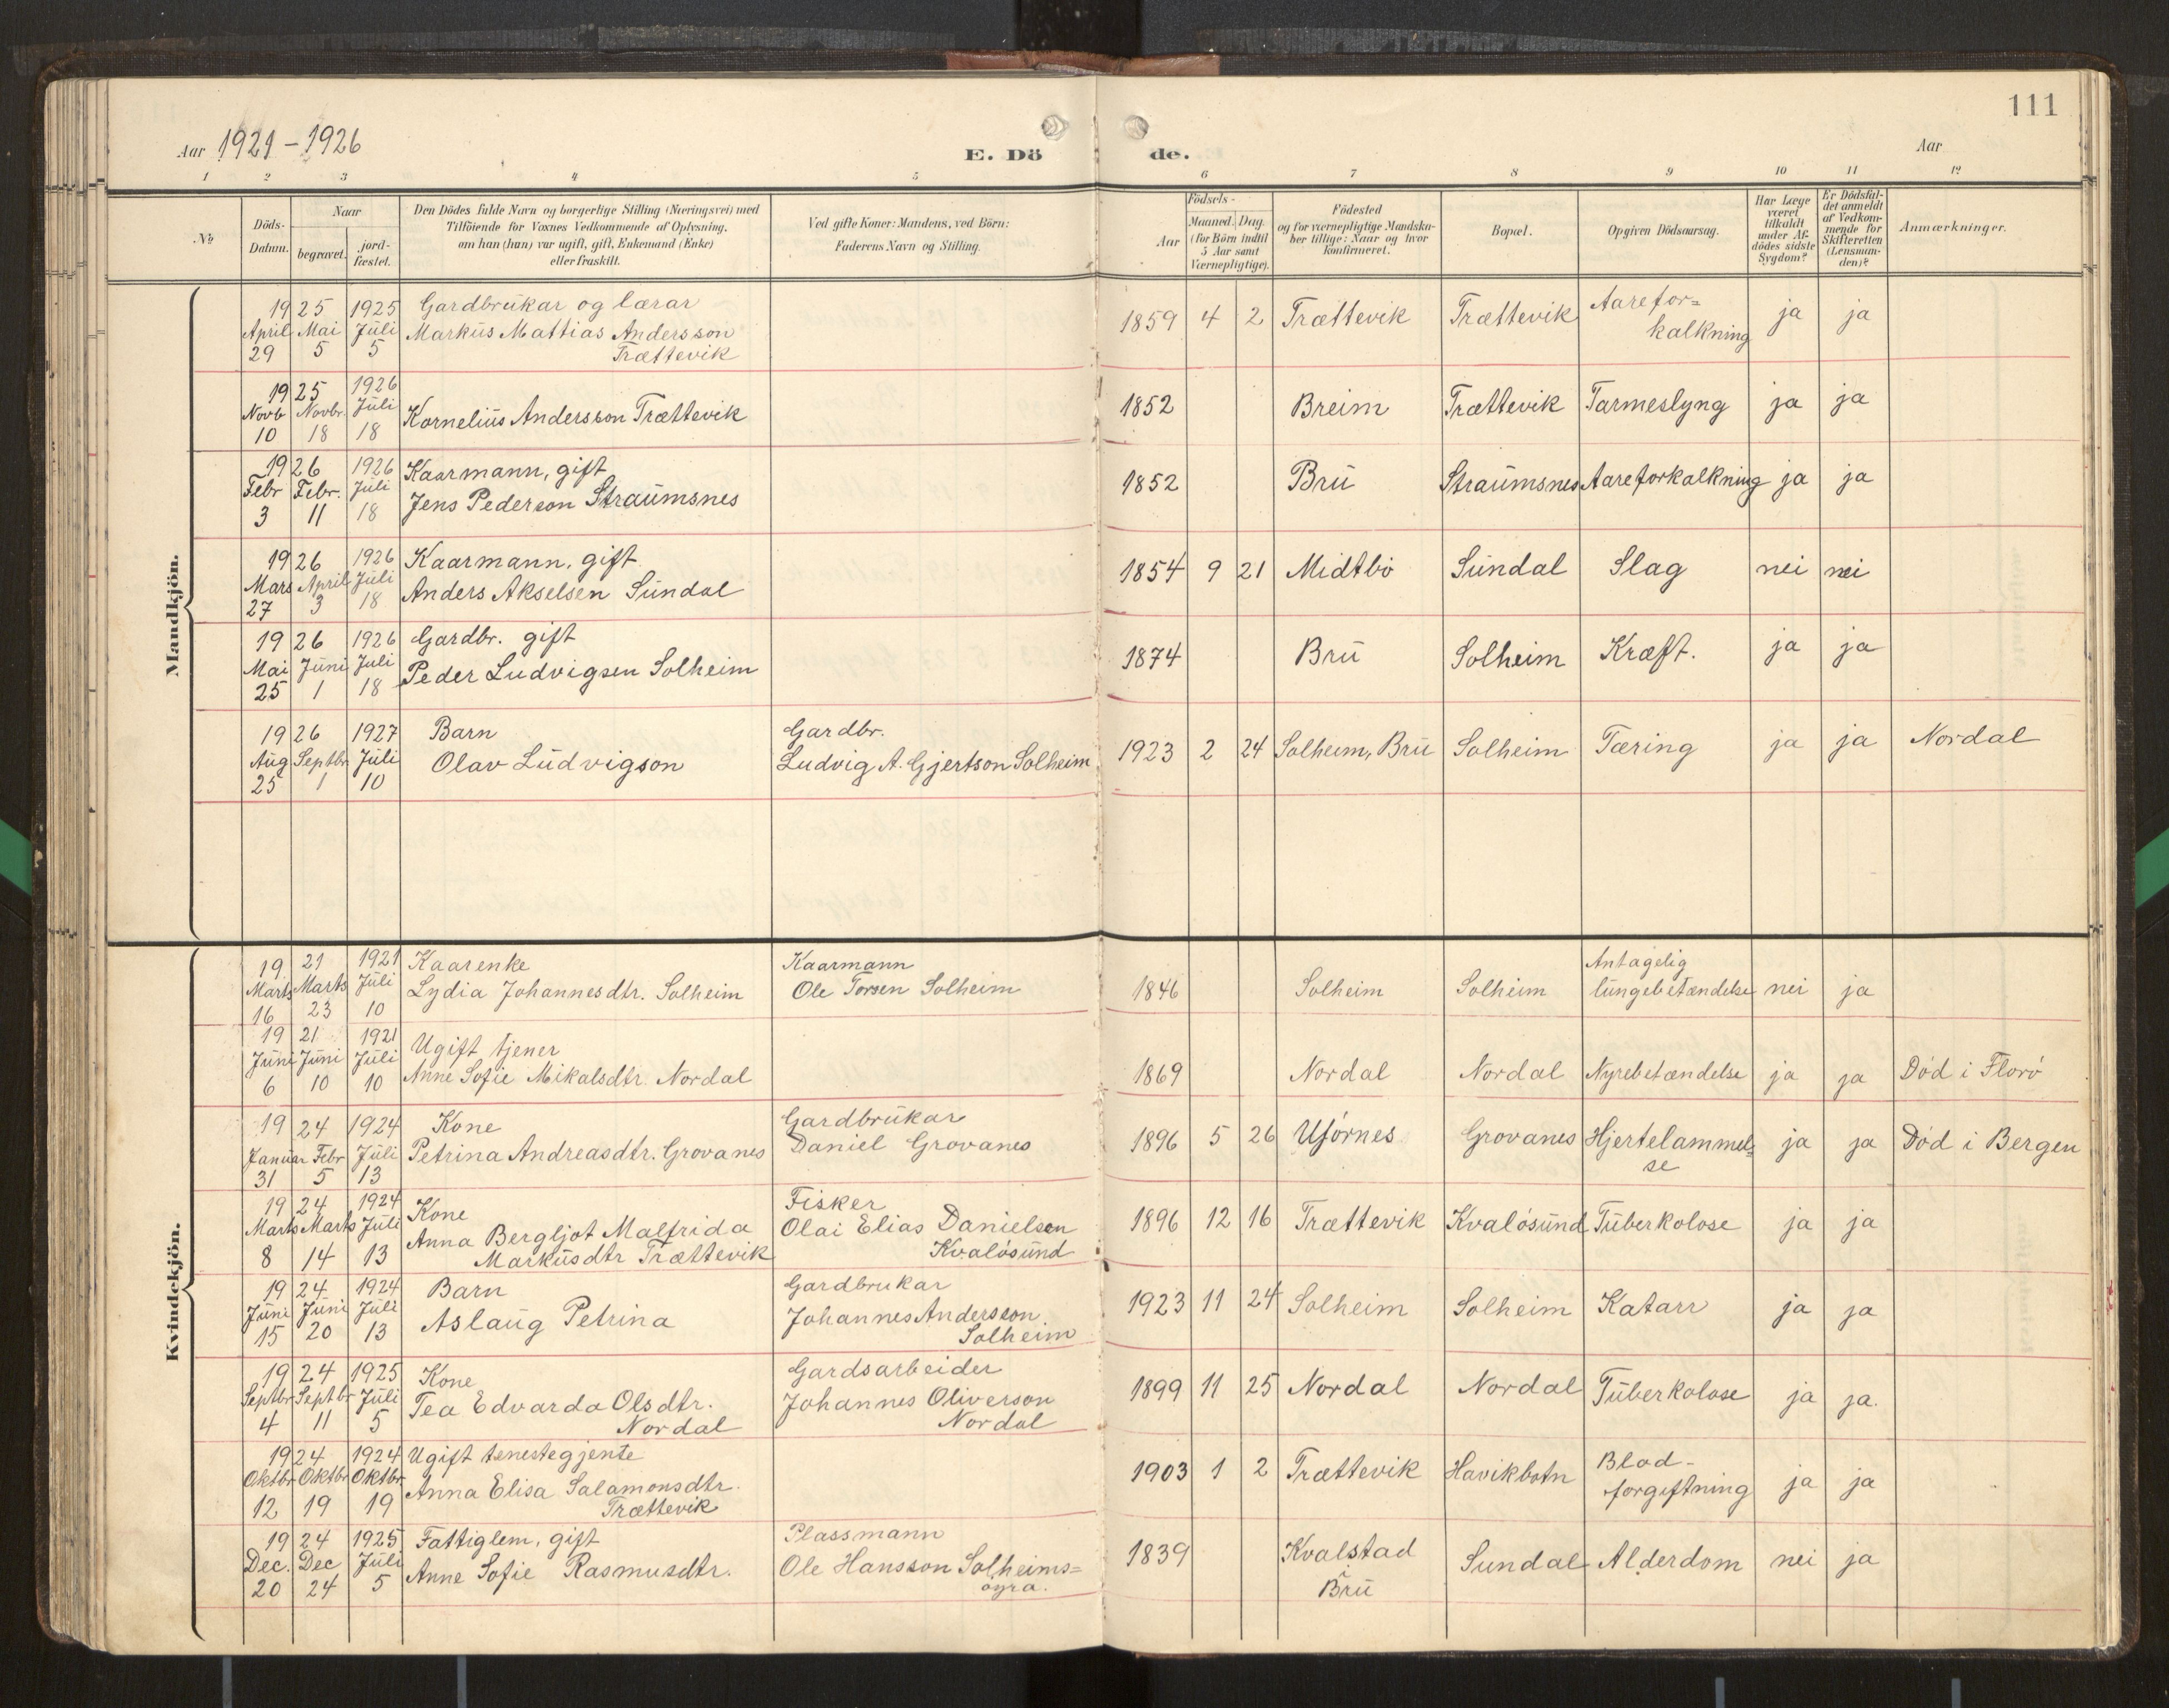 111
Aar 1921 - 1926
E. Dö de.
Aar
1 2 3 4 5 6 7 8 9 10 11 12
№
Döds-Datum.
Naar
begravet.
jord-fæstet.
Den Dödes fulde Navn og borgerlige Stilling (Næringsvei) med
Tilföiende for Voxnes Vedkommende af Oplysning,
om han (hun) var ugift, gift, Enkemand (Enke)
eller fraskilt.
Ved gifte Koner: Mandens, ved Börn:
Faderens Navn og Stilling.
Födsels-
Aar
Maaned. Dag.
(for Börn indtil
5 Aar samt
Værnepligtige).
Födested
og for værnepligtige Mandska-
ber tillige: Naar og hvor
konfirmeret.
Bopæl.
Opgiven Dödsaarsag.
Har Læge
været
tilkaldt
under Af-
dödes sidste
Sygdom?
Er Dödsfal-
det anmeldt
af Vedkom-
mende for
Skifteretten
(Lensman-
den)?
Anmærkninger.
Mandkjön.
1925 1925 Gardbrukar og lærar
April Mai Juli Markus Mattias Andersson 1859 4 2 Trættevik Trættevik Aarefor=
29 5 5 Trættevik kalkning ja ja
1925 1926
Novb Novbr. Juli Kornelius Andersson Trættevik 1852 Breim Trættevik Tarmeslyng ja ja
10 18 18
1926 1926 Kaarmann, gift
Febr Febr. Juli Jens Pederson Straumsnes 1852 Bru Straumsnes Aareforkalkning ja ja
3 11 18
1926 1926 Kaarmann, gift
Mars April Juli Anders Akselsen Sundal 1854 9 21 Midtbö Sundal Slag nei nei
27 3 18
1926 1926 Gardbr. gift
Mai Juni Juli Peder Ludvigsen Solheim 1874 Bru Solheim Kræft. ja ja
25 1 18
1926 1927 Barn Gardbr.
Aug Septbr Juli Olav Ludvigson Ludvig A. Gjertson Solheim 1923 2 24 Solheim, Bru Solheim Tæring ja ja Nordal
25 1 10
Kvindekjön.
1921 1921 Kaarenke Kaarmann Antagelig
Marts Marts Juli Lydia Johannesdtr. Solheim Ole Torsen Solheim 1846 Solheim Solheim lungebetændelse nei ja
16 23 10
1921 1921 Ugift tjener
Juni Juni Juli Anne Sofie Mikalsdtr. Nordal 1869 Nordal Nordal Nyrebetændelse ja ja Död i Florö
6 10 10
1924 1924 Kone Gardbrukar
Januar Febr Juli Petrina Andreasdtr. Grovanes Daniel Grovanes 1896 5 26 Grovanes Hjertelammel= ja ja Död i Bergen
31 5 13 se
1924 1924 Kone Fisker
Marts Marts Juli Anna Bergljot Malfrida Olai Elias Danielsen 1896 12 16 Trættevik Kvalösund Tuberkolose ja ja
8 14 13 Markusdtr Trættevik Kvalösund
1924 1924 Barn Gardbrukar
Juni Juni Juli Aslaug Petrina Johannes Andersson 1923 11 24 Solheim Solheim Katarr ja ja
15 20 13 Solheim
1924 1925 Kone Gardsarbeider
Septbr Septbr Juli Tea Edvarda Olsdtr. Johannes Oliverson 1899 11 25 Nordal Nordal Tuberkolose ja ja.
4 11 5 Nordal Nordal
1924 1924 Ugift tenestegjente
Oktbr Oktbr Oktbr Anna Elisa Salamonsdtr. 1903 1 2 Trættevik Havikbotn Blod-
12 19 19 Trættevik forgiftning ja ja
1924 1925 Fattiglem, gift Plassmann
Dec. Dec Juli Anne Sofie Rasmusdtr. Ole Hansson Solheims= 1839 Kvalstad Sundal Alderdom nei ja
20 24 5 öyra. i Bru